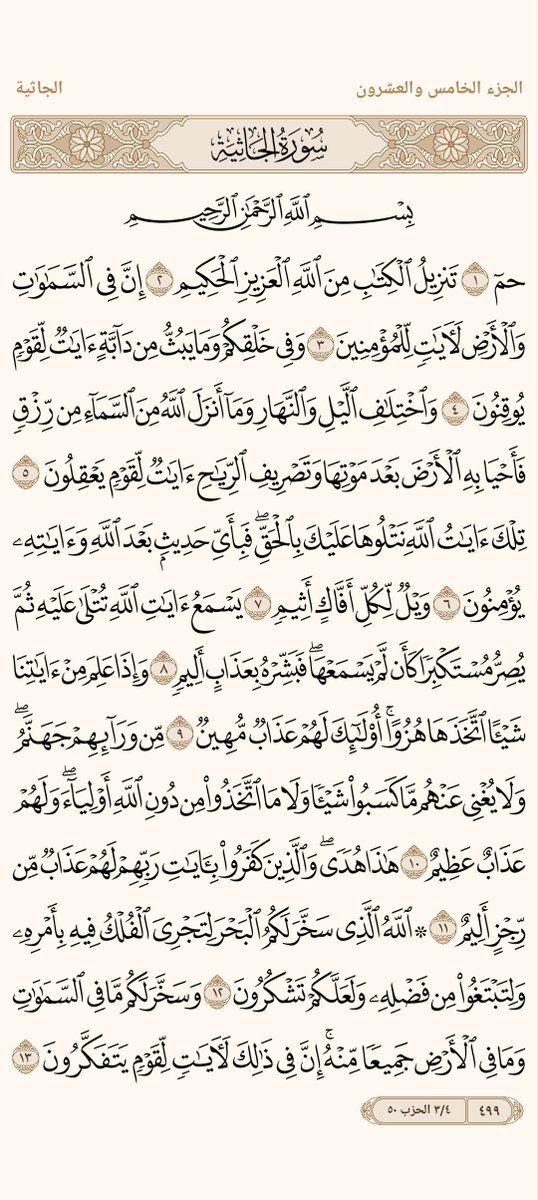 الجزء الخامس والعشرون الجاثية
سُورَةُ الجَاثِيَةِ
بِسْمِ ٱللَّهِ ٱلرَّحْمَٰنِ ٱلرَّحِيمِ
حمٓ ١ تَنزِيلُ ٱلْكِتَٰبِ مِنَ ٱللَّهِ ٱلْعَزِيزِ ٱلْحَكِيمِ ٢ إِنَّ فِى ٱلسَّمَٰوَٰتِ
وَٱلْأَرْضِ لَءَايَٰتٍ لِّلْمُؤْمِنِينَ ٣ وَفِى خَلْقِكُمْ وَمَا يَبُثُّ مِن دَآبَّةٍ ءَايَٰتٌ لِّقَوْمٍ
يُوقِنُونَ ٤ وَٱخْتِلَٰفِ ٱلَّيْلِ وَٱلنَّهَارِ وَمَآ أَنزَلَ ٱللَّهُ مِنَ ٱلسَّمَآءِ مِن رِّزْقٍ
فَأَحْيَا بِهِ ٱلْأَرْضَ بَعْدَ مَوْتِهَا وَتَصْرِيفِ ٱلرِّيَٰحِ ءَايَٰتٌ لِّقَوْمٍ يَعْقِلُونَ ٥
تِلْكَ ءَايَٰتُ ٱللَّهِ نَتْلُوهَا عَلَيْكَ بِٱلْحَقِّ ۖ فَبِأَىِّ حَدِيثٍۭ بَعْدَ ٱللَّهِ وَءَايَٰتِهِۦ
يُؤْمِنُونَ ٦ وَيْلٌ لِّكُلِّ أَفَّاكٍ أَثِيمٍ ٧ يَسْمَعُ ءَايَٰتِ ٱللَّهِ تُتْلَىٰ عَلَيْهِ ثُمَّ
يُصِرُّ مُسْتَكْبِرًا كَأَن لَّمْ يَسْمَعْهَا ۖ فَبَشِّرْهُ بِعَذَابٍ أَلِيمٍ ٨ وَإِذَا عَلِمَ مِنْ ءَايَٰتِنَا
شَيْـًٔا ٱتَّخَذَهَا هُزُوًا ۚ أُو۟لَٰٓئِكَ لَهُمْ عَذَابٌ مُّهِينٌ ٩ مِّن وَرَآئِهِمْ جَهَنَّمُ ۖ
وَلَا يُغْنِى عَنْهُم مَّا كَسَبُوا۟ شَيْـًٔا وَلَا مَا ٱتَّخَذُوا۟ مِن دُونِ ٱللَّهِ أَوْلِيَآءَ ۖ وَلَهُمْ
عَذَابٌ عَظِيمٌ ١٠ هَٰذَا هُدًى ۖ وَٱلَّذِينَ كَفَرُوا۟ بِـَٔايَٰتِ رَبِّهِمْ لَهُمْ عَذَابٌ مِّن
رِّجْزٍ أَلِيمٌ ١١ ۞ ٱللَّهُ ٱلَّذِى سَخَّرَ لَكُمُ ٱلْبَحْرَ لِتَجْرِىَ ٱلْفُلْكُ فِيهِ بِأَمْرِهِۦ
وَلِتَبْتَغُوا۟ مِن فَضْلِهِۦ وَلَعَلَّكُمْ تَشْكُرُونَ ١٢ وَسَخَّرَ لَكُم مَّا فِى ٱلسَّمَٰوَٰتِ
وَمَا فِى ٱلْأَرْضِ جَمِيعًا مِّنْهُ ۚ إِنَّ فِى ذَٰلِكَ لَءَايَٰتٍ لِّقَوْمٍ يَتَفَكَّرُونَ ١٣
٤٩٩ ٣/٤ الحزب ٥٠